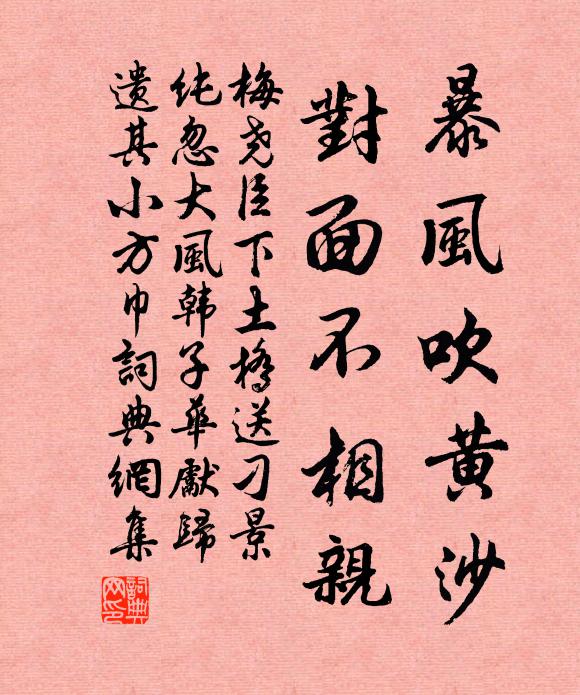 暴風吹黄沙
對面不相親
梅尧臣下土橋送刁景
纯忽大風韩子華獻歸
遗其小方巾詞典網集
詞典网印